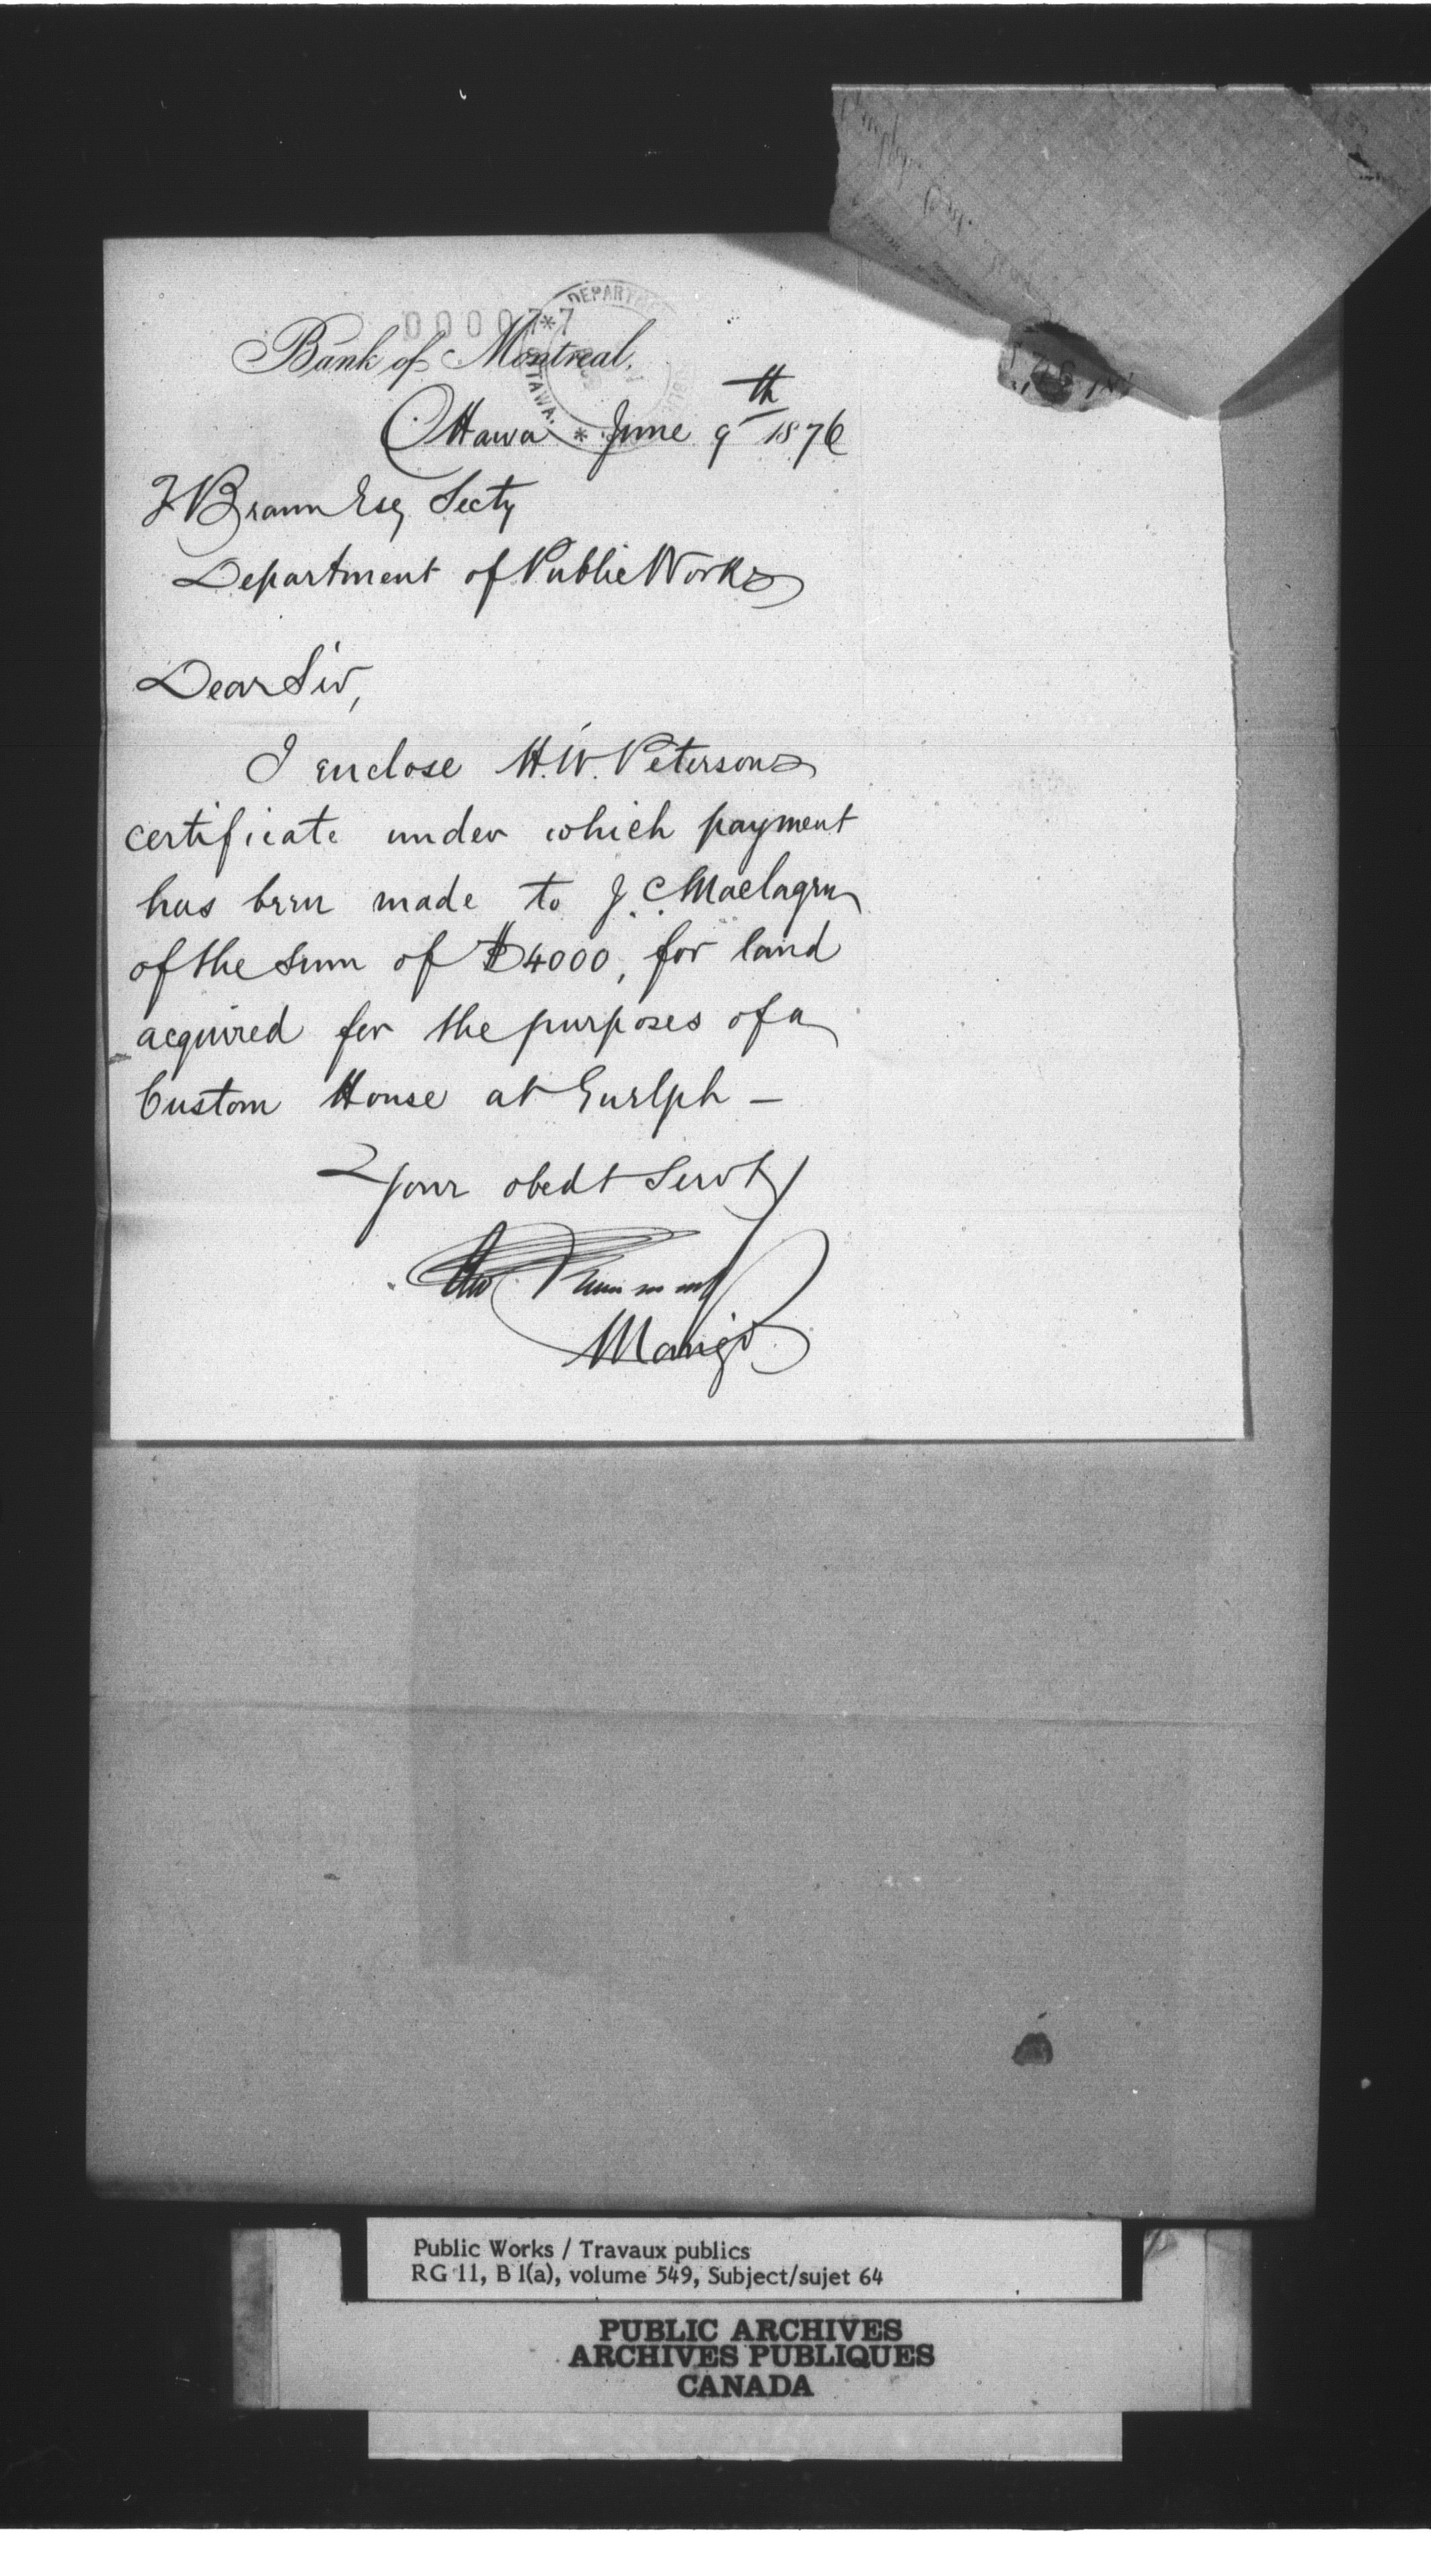 Bank of Montreal,
Ottawa June 9th 1876
F Braun Esq Secty
Department of Public Works
Dear Sir,
I enclose H.W. Petersons
certificate under which payment
has been made to J. C. Maclagan
of the sum of $4000, for land
acquired for the purposes of a
Custom House at Guelph –
Your obedt Servt
Drummond
Mangr
Public Works / Travaux publics
RG 11, B 1(a), volume 549, Subject/sujet 64
PUBLIC ARCHIVES
ARCHIVES PUBLIQUES
CANADA